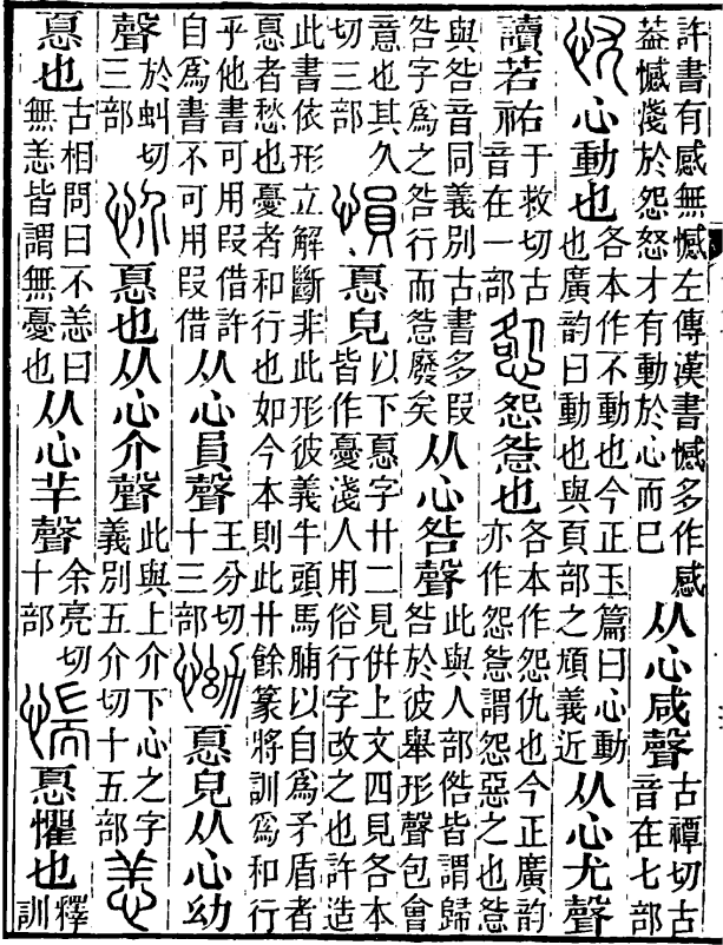 許書有感無憾左傳漢書憾多作感
葢憾淺於怨怒才有動於心而巳
从心咸聲
古禫切古
音在七部
忧
心動也
各本作不動也今正玉篇曰心動
也廣韵曰動也與頁部之義近
从心尤聲
讀若祐
于救切古
音在一部
慦
怨慦也
各本作怨仇也今正廣韵
亦作怨慦謂怨惡之也慦
與咎音同義別古書多叚
咎字爲之咎行而慦廢矣
从心咎聲
此與人部倃皆謂歸
咎於彼舉形聲包會
意也其久
切三部
愪
𢝊皃
以下𢝊字廿二見倂上文四見各本
皆作憂淺人用俗行字改之也許造
此書依形立解斷非此形彼義牛頭馬脯以自爲矛盾者
𢝊者愁也憂者和行也如今本則此廿餘篆將訓爲和行
乎他書可用叚借許
自爲書不可用叚借
从心員聲
王分切
十三部
怮
𢝊皃从心幼
聲
於虯切
三部
㤊
𢝊也从心介聲
此與上介下心之字
義別五介切十五部
恙
𢝊也
古相問曰不恙曰
無恙皆謂無憂也
从心𦍌聲
余亮切
十部
惴
𢝊懼也
釋
訓